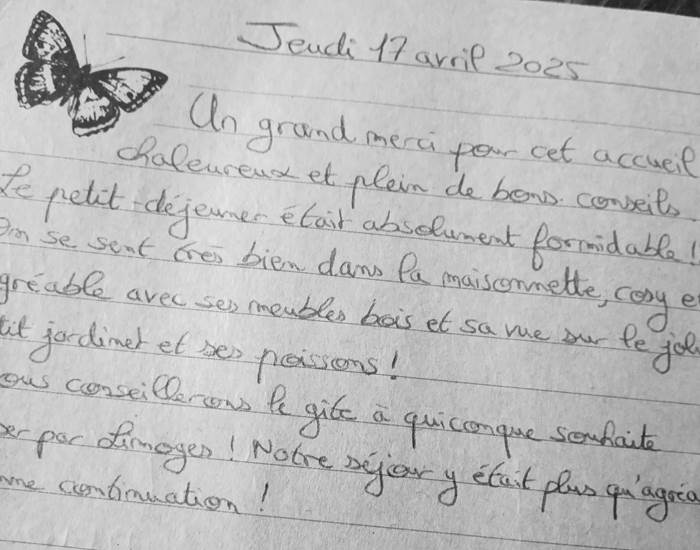 Jeudi 17 avril 2025
Un grand merci pour cet accueil
chaleureux et plein de bons conseils
Le petit-déjeuner était absolument formidable !
On se sent très bien dans la maisonnette, cosy e
gréable avec ses meubles bois et sa vue sur le joli
tit jardinet et ses poissons !
ous conseillerons le gîte à quiconque souhaite
er par Limoges ! Notre séjour y était plus qu'agréa
nne continuation !